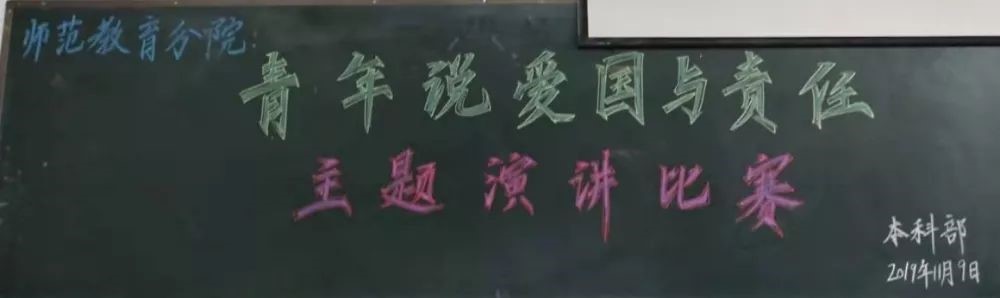 师范教育分院
青年说爱国与责任
主题演讲比赛
本科部
2019年11月9日